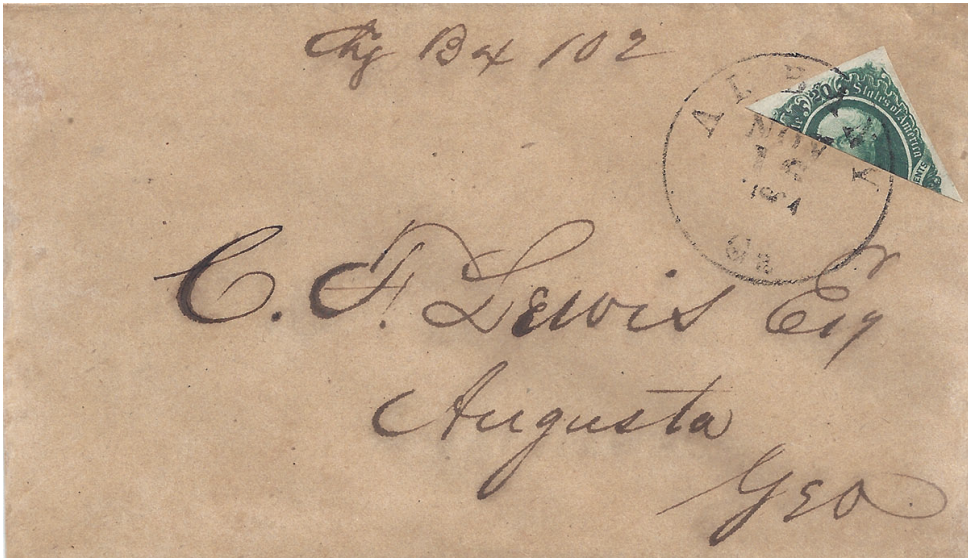 Chg Box 102
ALBANY
NOV
18
1864
Ga
20
States of America
C. F. Lewis Esqr
Augusta
Geo